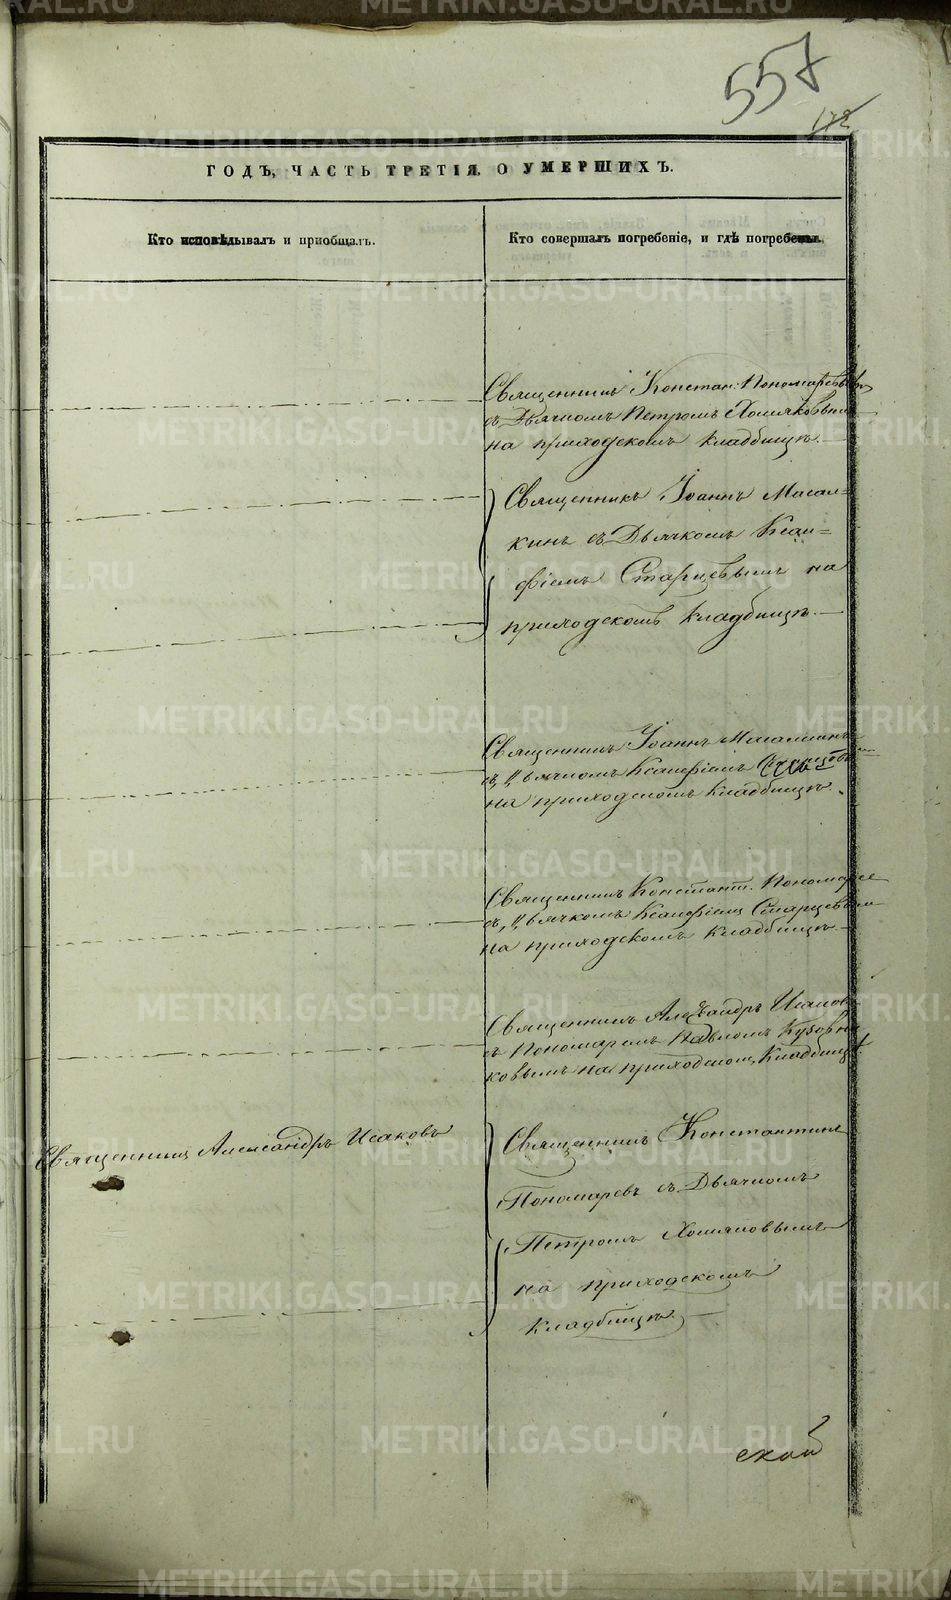 557
172
ГОДЪ, ЧАСТЬ ТРЕТІЯ, О УМЕРШИХЪ.
Кто исповѣдывалъ и пріобщалъ.
Кто совершалъ погребеніе, и гдѣ погребены.
Священникъ Констан: Пономаревъ
съ Дьячкомъ Петромъ Хомяковымъ
на приходскомъ кладбищѣ.
Священникъ Іоаннъ Масал=
кинъ съ Дьячкомъ Ксан=
фіемъ Старцевымъ на
приходскомъ кладбищѣ.
Священникъ Іоаннъ Масалкинъ
съ Дьячкомъ Ксанфіемъ Старцевымъ
на приходскомъ кладбищѣ.
Священникъ Констант. Пономарев
съ Дьячкомъ Ксанфіемъ Старцевымъ
на приходскомъ кладбищѣ
Священникъ Александръ Исаковъ
съ Пономаремъ Павломъ
ковымъ на приходском кладбищѣ.
Священникъ Александръ Исаковъ
Священникъ Константинъ
Пономаревъ съ Дьячкомъ
Петромъ Хомяковымъ
на приходскомъ
кладбищѣ.
ской
METRIKI.GASO-URAL.RU